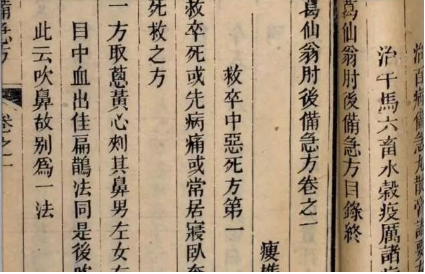 治牛馬六畜水穀疫厲諸
葛仙翁肘後備急方目錄終
葛仙翁肘後備急方卷之一
瘦樵
救卒中惡死方第一
救卒死或先病痛或常居寢臥奄
死救之方
一方取蔥黃心刺其鼻男左女右
目中血出佳扁鵲法同是後
此云吹鼻故別為一法
備急方
卷之一